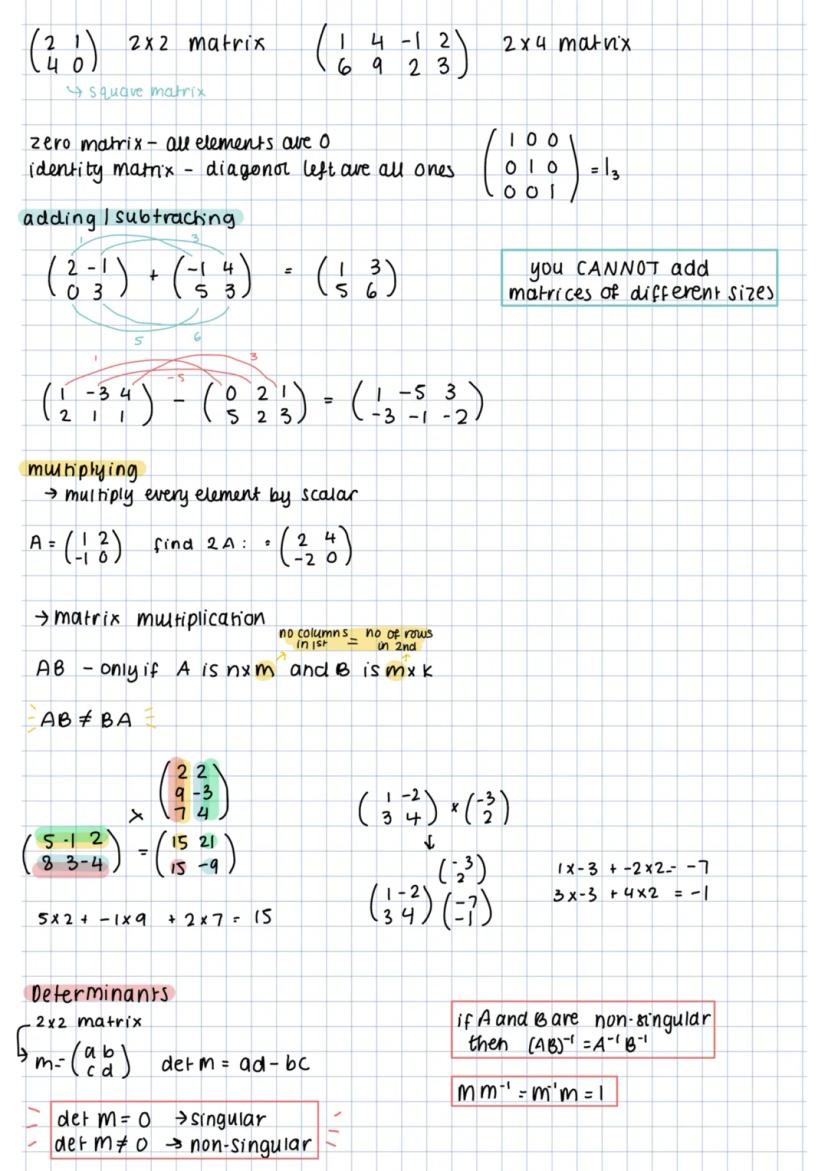 (2 1
4 0) 2x2 matrix (1 4 -1 2
6 9 2 3) 2x4 matrix
↳ square matrix
zero matrix - all elements are 0
identity matrix - diagonal left are all ones (1 0 0
0 1 0
0 0 1) = I₃
adding / subtracting
1 3
(2 -1
0 3) + (-1 4
5 3) = (1 3
5 6)
5 6
you CANNOT add
matrices of different sizes
1 -5 3
(1 -3 4
2 1 1) - (0 2 1
5 2 3) = (1 -5 3
-3 -1 -2)
multiplying
→ multiply every element by scalar
A = (1 2
-1 0) find 2A: = (2 4
-2 0)
→ matrix multiplication
no columns in 1st = no of rows in 2nd
AB - only if A is nxm and B is mxk
AB ≠ BA
(2 2
9 -3
7 4)
×
(5 -1 2
8 3 -4) = (15 21
15 -9)
5x2 + -1x9 + 2x7 = 15
(1 -2
3 4) × (-3
2)
↓
(-3
2)
(1 -2
3 4) (-7
-1)
1x-3 + -2x2 = -7
3x-3 + 4x2 = -1
Determinants
2x2 matrix
m = (a b
c d) det m = ad - bc
det m = 0 → singular
det m ≠ 0 → non-singular
if A and B are non-singular
then (AB)⁻¹ = A⁻¹ B⁻¹
m m⁻¹ = m⁻¹ m = I